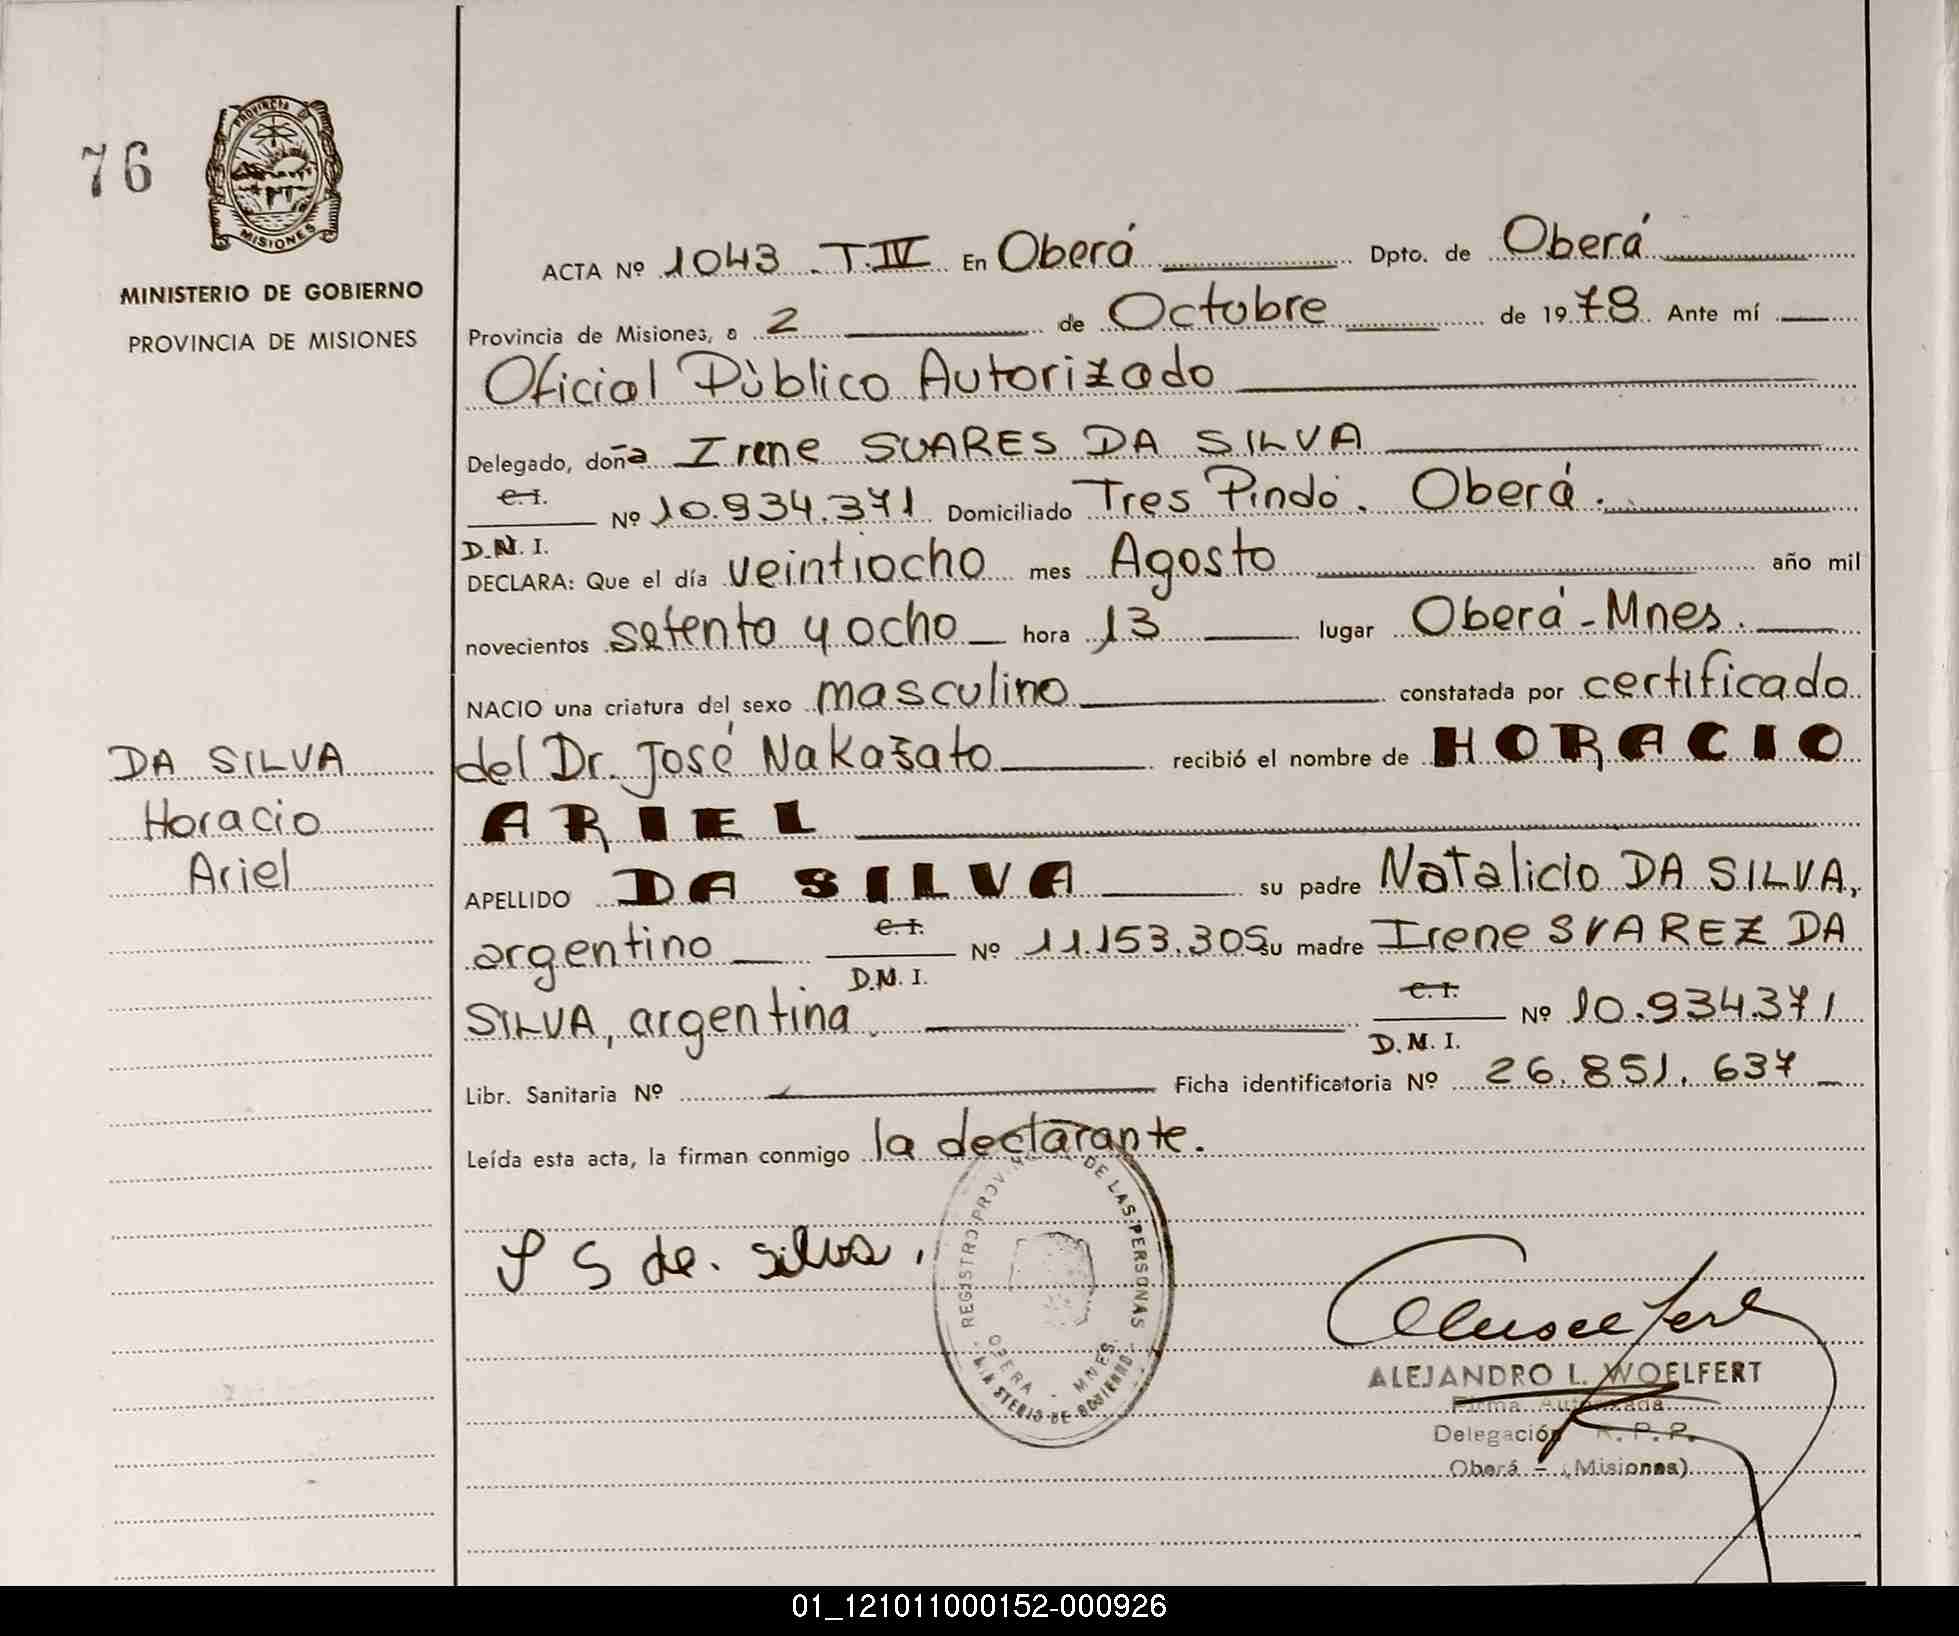 76
PROVINCIA D
MISIONES
MINISTERIO DE GOBIERNO
PROVINCIA DE MISIONES
ACTA Nº 1043 T.IV En Oberá Dpto. de Oberá
Provincia de Misiones, a 2 de Octubre de 1978 Ante mí
Oficial Público Autorizado
Delegado, doña Irene SUARES DA SILVA
C.I.
D.N.I. Nº 10.934.371 Domiciliado Tres Pindó. Oberá.
DECLARA: Que el día veintiocho mes Agosto año mil
novecientos setenta y ocho hora 13 lugar Oberá - Mnes.
NACIO una criatura del sexo masculino constatada por certificado
del Dr. José Nakasato recibió el nombre de HORACIO
ARIEL
APELLIDO DA SILVA su padre Natalicio DA SILVA,
argentino C.I. D.N.I. Nº 11.153.305 su madre Irene SUAREZ DA
SILVA, argentina. C.I. D.M.I. Nº 10.934.371
Libr. Sanitaria Nº Ficha identificatoria Nº 26.851.637
Leída esta acta, la firman conmigo la declarante.
DA SILVA
Horacio
Ariel
S de. silva.
REGISTRO PROV. DE LAS PERSONAS
OBERA - MNES.
MINISTERIO DE GOBIERNO
ALEJANDRO L. WOELFERT
Firma Autorizada
Delegación R.P.P.
Oberá - (Misiones)
01_121011000152-000926